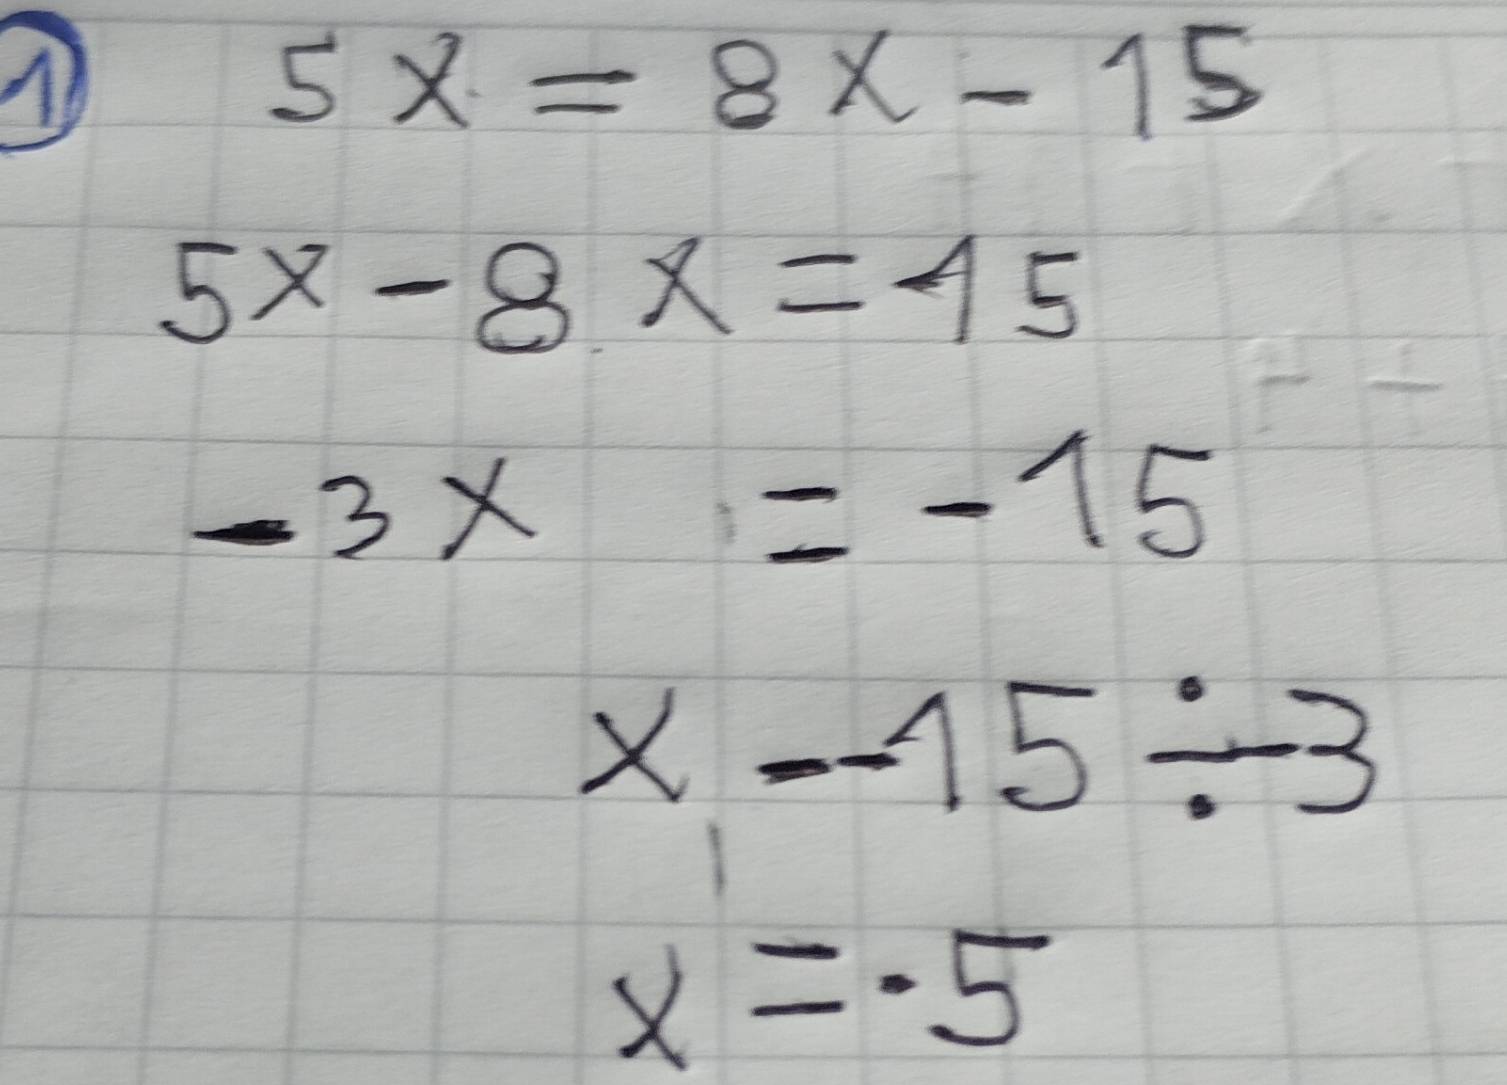 ① 5x = 8x - 15
5x - 8x = -15
-3x = -15
x - -15 ÷ 3
x = -5